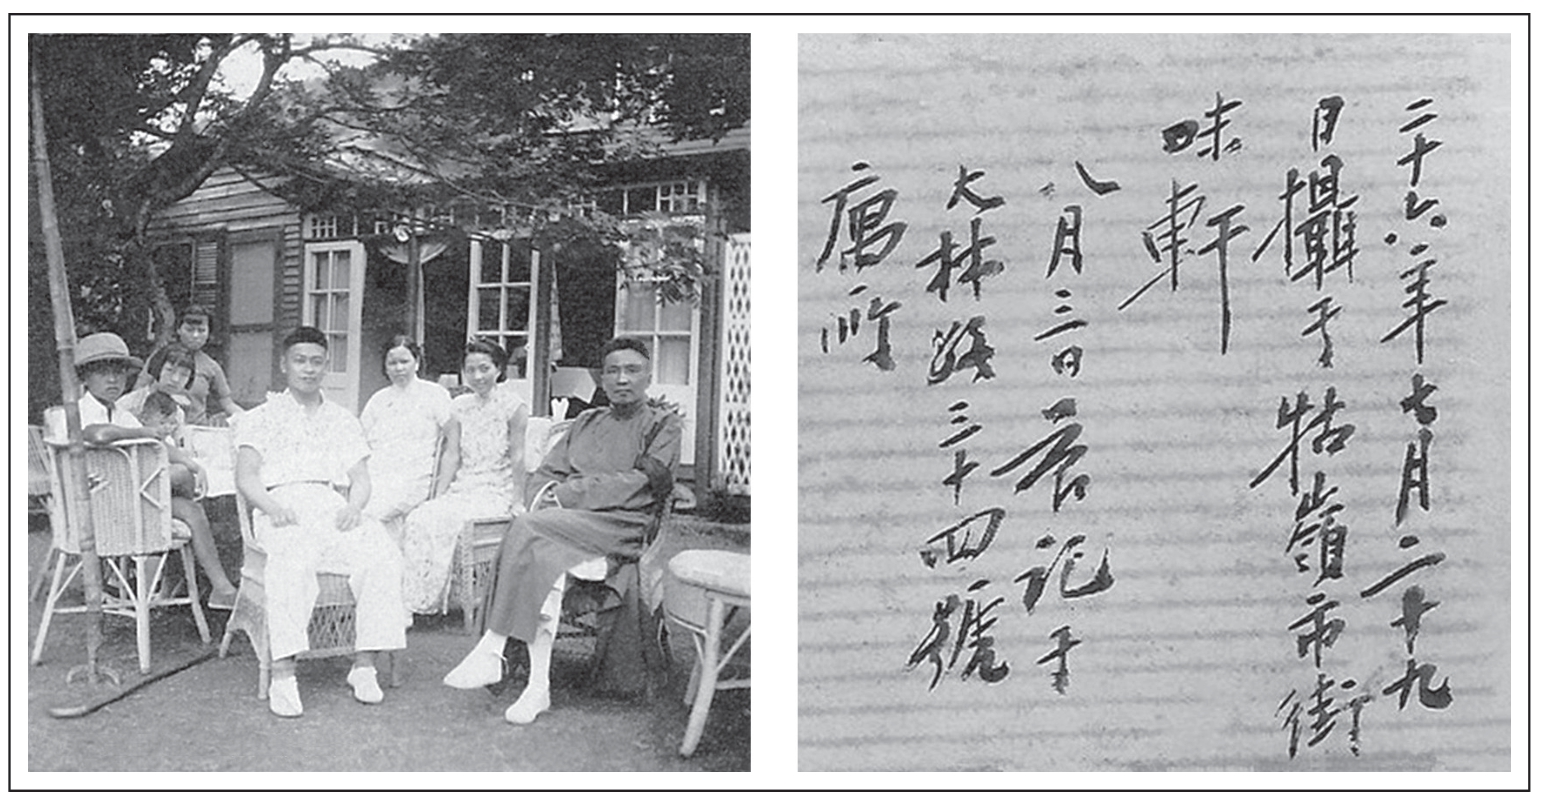 二十六年七月二十九
日攝于牯嶺市街
味軒
八月三日記于
大林路三十四號
寓所